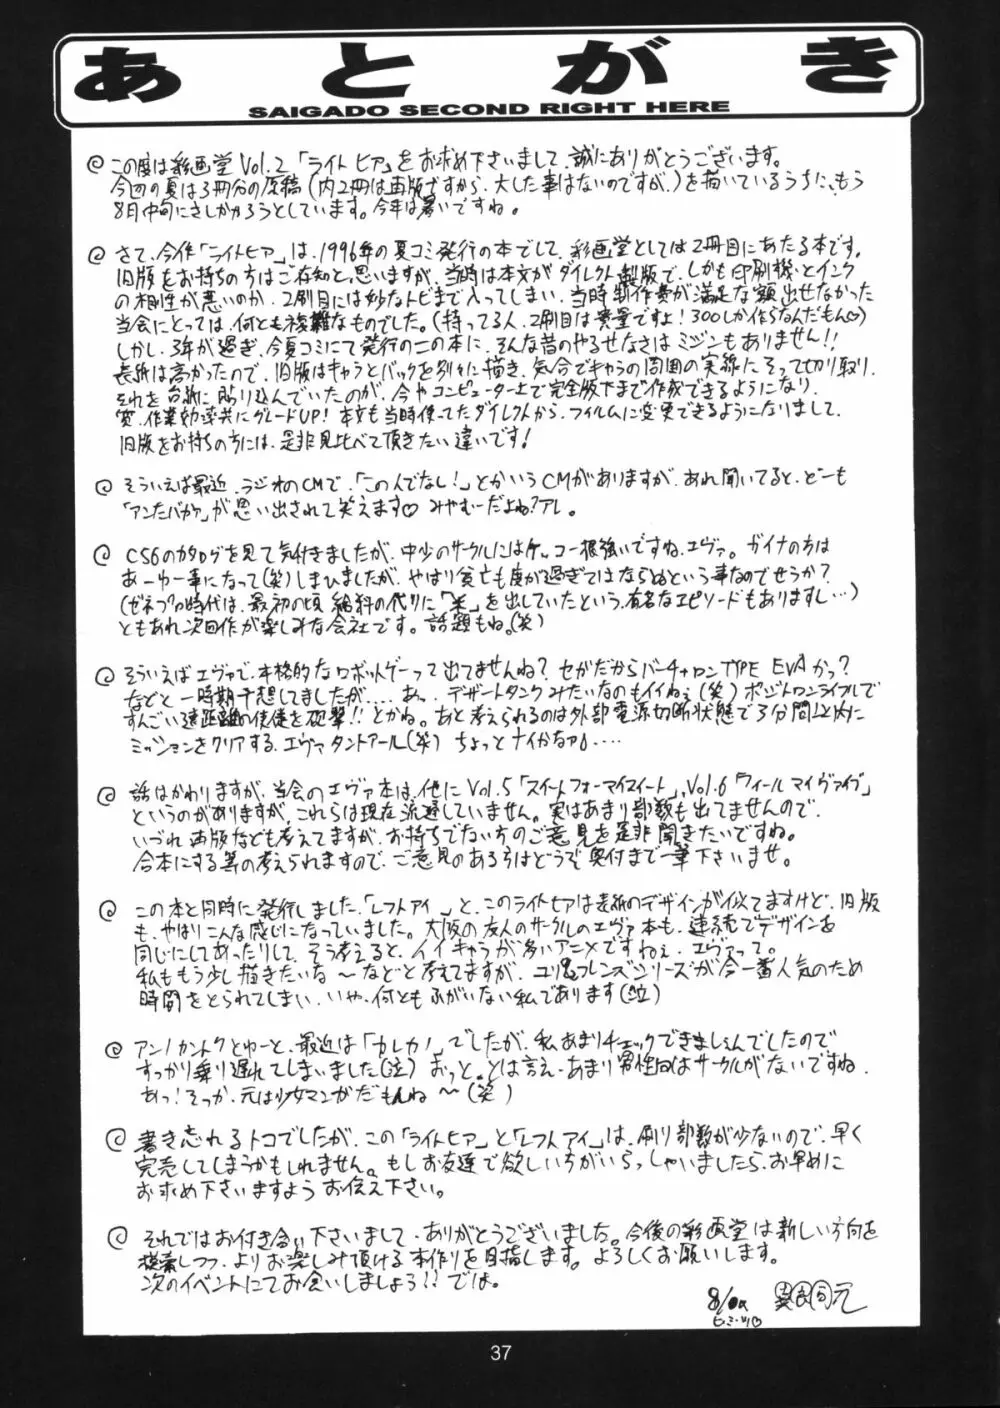 あとがき
SAIGADO SECOND RIGHT HERE
この度は彩画堂Vol.2「ライトヒア」をお求め下さいまして、誠にありがとうございます。
今回の夏は3冊分の原稿(内2冊は再版ですから、大した事はないのですが、)を描いているうちに、もう
8月中旬にさしかかろうとしています。今年は暑いですね。
さて、今作「ライトヒア」は、1996年の夏コミ発行の本でして、彩画堂としては2冊目にあたる本です。
旧版をお持ちの方はご存知と思いますが、当時は本文がダイレクト製版で、しかも印刷機とインク
の相性が悪いのか、2刷目には妙なトビまで入ってしまい、当時制作費が満足な額出せなかった
当会にとっては、何とも複雑なものでした。(持ってる人、2刷目は貴重ですよ!300しか作らなんだもん♡)
しかし、3年が過ぎ、今夏コミにて発行のこの本に、そんな昔のやるせなさはミジンもありません!!
表紙は高かったので、旧版はキャラとバックを別々に描き、気合でキャラの周囲の実線にそって切り取り、
それを台紙に貼り込んでいたのが、今やコンピューター上で完全版下まで作成できるようになり
質、作業効率共にグレードUP!本文も当時使ってたダイレクトから、フィルムに変更できるようになりまして、
旧版をお持ちの方には、是非見比べて頂きたい違いです!
そういえば最近、ラジオのCMで、「この人でなし!」とかいうCMがありますが、あれ聞いてると、どーも
「アンタバカァ」が思い出されて笑えます♡ みやむーだよね?アレ。
C56のカタログを見て気付きましたが、中少のサークルにはケッコー根強いですね、エヴァ。ガイナの方は
あーゆー事になって(笑)しまひましたが、やはり貧亡も度が過ぎてはならぬという事なのでせうか?
(ゼネプロ時代は、最初の頃、給料の代りに「米」を出していたという、有名なエピソードもありますし…)
ともあれ次回作が楽しみな会社です。話題もね。(笑)
そういえばエヴァで、本格的なロボットゲーって出てませんね?セガだからバーチャロンTYPE EVAかっ?
などと一時期予想してましたが……あっ、デザートタンクみたいなのもイイねぇ(笑)ポジトロンライフルで
すんごい遠距離の使徒を砲撃!!とかね。あと考えられるのは外部電源切断状態で3分間以内に
ミッションをクリアする、エヴァタントアール(笑) ちょっとナイかなァ。….
話はかわりますが、当会のエヴァ本は、他にVol.5「スイートフォーマイスイート」、Vol.6「フィールマイヴァイヴ」
というのがありますが、これらは現在流通していません。実はあまり部数も出てませんので、
いづれ再版なども考えてますが、お持ちでない方のご意見を是非聞きたいですね。
合本にする等の考えられますので、ご意見のある方はどうぞ奥付まで一筆下さいませ。
この本と同時に発行しました、「レフトアイ」と、このライトヒアは表紙のデザインが似てますけど、旧版
も、やはりこんな感じになっていました。大阪の友人のサークルのエヴァ本も、連続でデザインを
同じにしてあったりして、そう考えると、イイキャラが多いアニメですねぇ、エヴァって。
私ももう少し描きたいな〜などと考えてますが、ユリ&フレンズシリーズが今一番人気のため
時間をとられてしまい、いや、何ともふがいない私であります(泣)
アンノカントクとゆーと、最近は「カレカノ」でしたが、私あまりチェックできましぇんでしたので
すっかり乗り遅れてしまいました(泣) おっと。とは言え、あまり男性向はサークルがないですね
あっ!そっか、元は少女マンガだもんね〜(笑)
書き忘れるトコでしたが、この「ライトヒア」と「レフトアイ」は、刷り部数が少ないので、早く
完売してしまうかもしれません。もしお友達で欲しい方がいらっしゃいましたら、お早めに
お求め下さいますようお伝え下さい。
それではお付き合い下さいまして、ありがとうございました。今後の彩画堂は新しい方向を
模索しつつ、よりお楽しみ頂ける本作りを目指します。よろしくお願いします。
次のイベントにてお会いしましょう!!では。
37